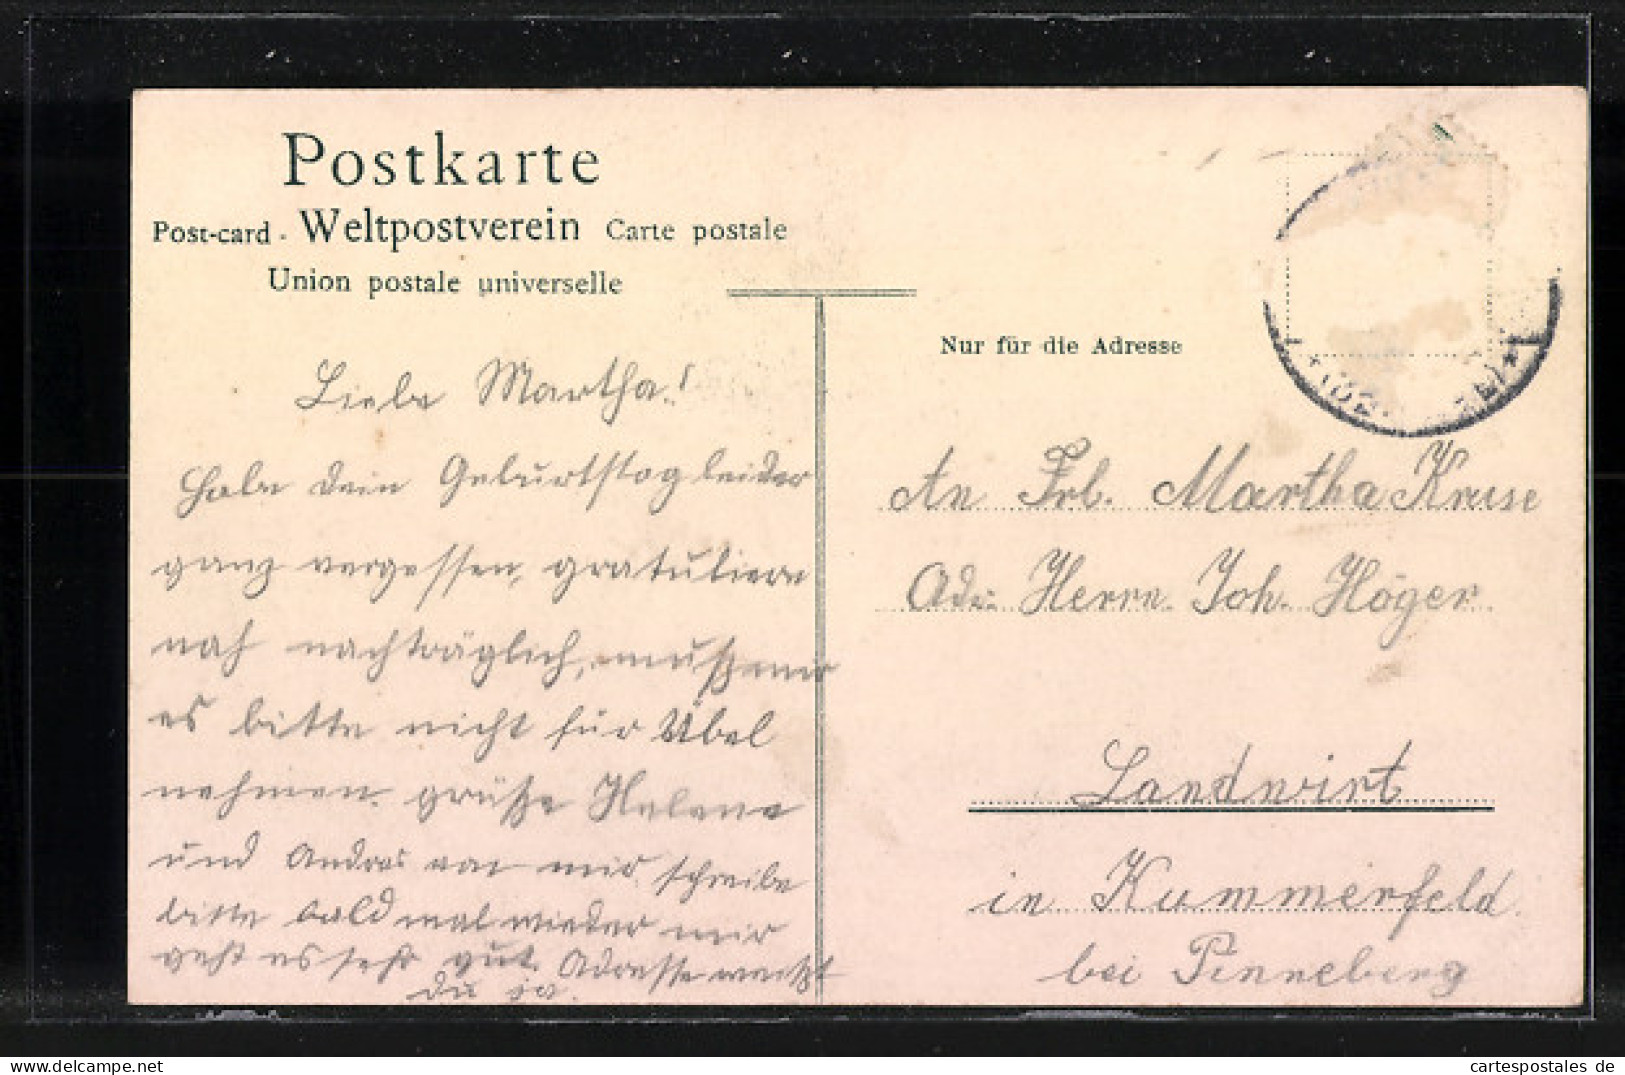 Postkarte
Post-card. Weltpostverein Carte postale
Union postale universelle
Nur für die Adresse
Liebe Martha!
Habe dein Geburtstag leider
ganz vergessen, gratuliere
nachträglich,
es bitte nicht für Übel
nehmen. grüße Helene
und von mir schreibe
bitte bald mal wieder mir
geht es sehr gut. Adresse weißt
du ja.
An Frl. Martha Kruse
Adr. Herrn. Joh. Höger
Landwirt
in Kummerfeld
bei Pinneberg
cartespostales de